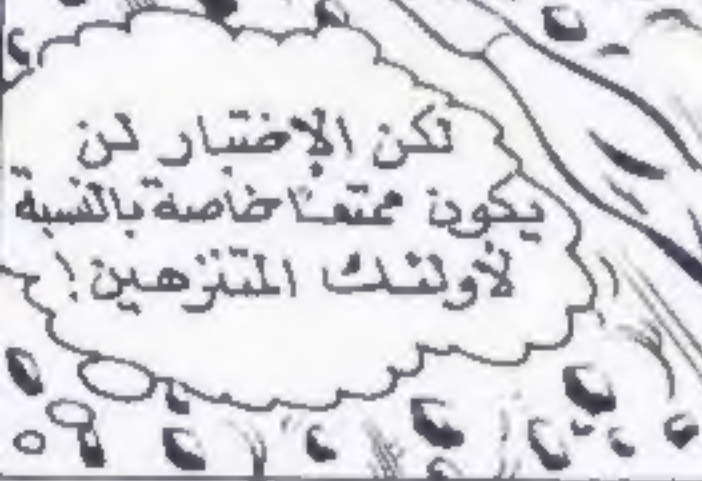 لكن الإختبار لن
يكون ممتعًا خاصة بالنسبة
لأولئك المتنزهين!